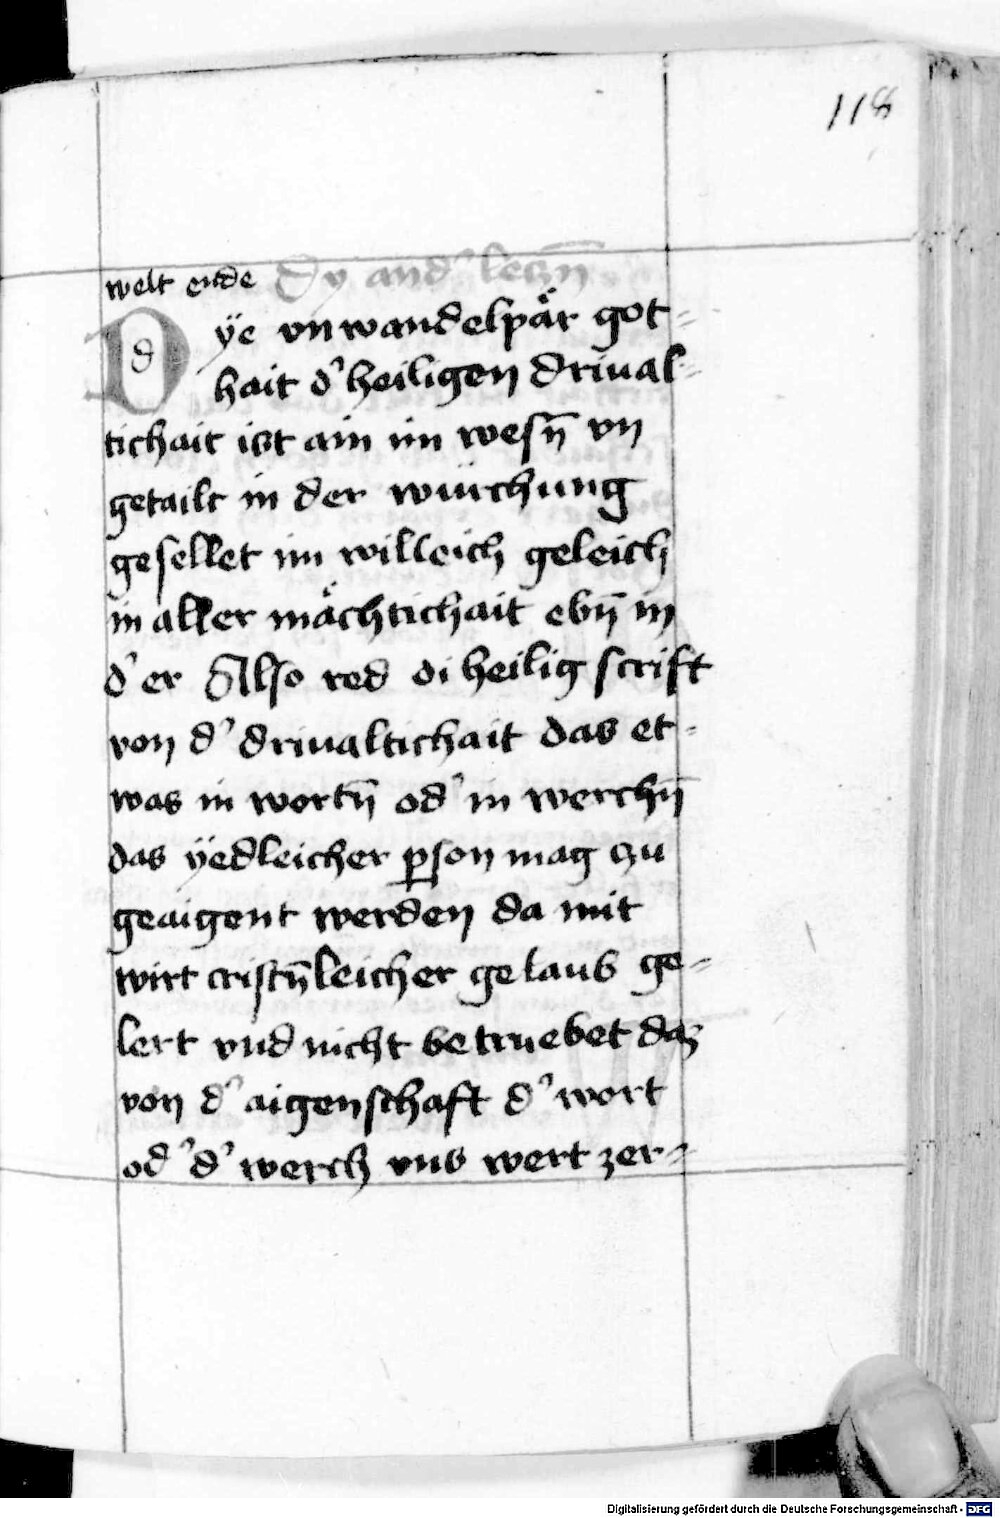 118
welt ende Dy and' leczn̄
Dye vnwandelpär got-
hait d' heiligen driual-
tichait ist ain im wesn̄ vn
getailt in der würchung
gesellet im willeich geleich
in aller mächtichait ebn̄ in
d' er Also red di heilig scrift
von d' driualtichait das et-
was in wortn̄ od' in werchn̄
das ÿedleicher ꝑson mag czu
geaigent werden da mit
wirt cristn̄leicher gelaub ge-
lert vnd nicht betruebet daz
von d' aigenschaft d' wort
od' d' werch vns wert zer-
Digitalisierung gefördert durch die Deutsche Forschungsgemeinschaft - DFG